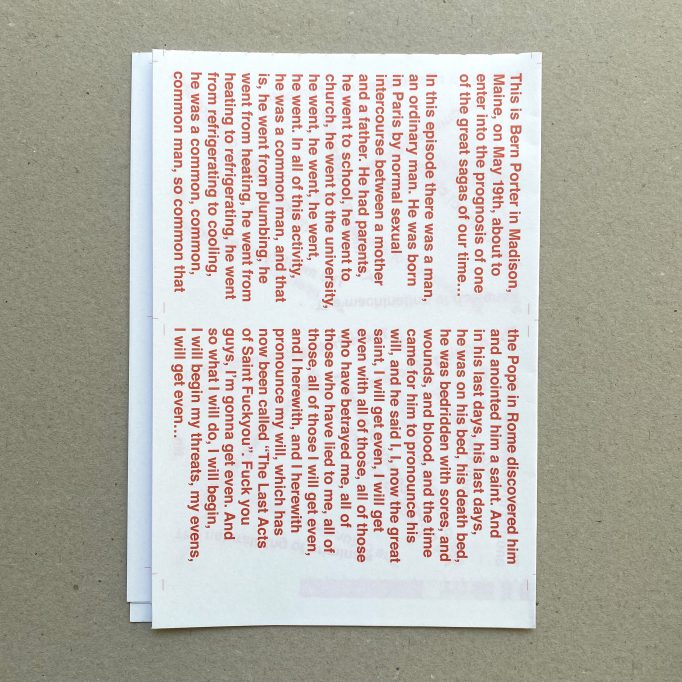 This is Bern Porter in Madison,
Maine, on May 19th, about to
enter into the prognosis of one
of the great sagas of our time...
In this episode there was a man,
an ordinary man. He was born
in Paris by normal sexual
intercourse between a mother
and a father. He had parents,
he went to school, he went to
church, he went to the university,
he went, he went, he went,
he went. In all of this activity,
he was a common man, and that
is, he went from plumbing, he
went from heating, he went from
heating to refrigerating, he went
from refrigerating to cooling,
he was a common, common,
common man, so common that
the Pope in Rome discovered him
and anointed him a saint. And
in his last days, his last days,
he was on his bed, his death bed,
he was bedridden with sores, and
wounds, and blood, and the time
came for him to pronounce his
will, and he said I, I, now the great
saint, I will get even, I will get
even with all of those, all of those
who have betrayed me, all of
those who have lied to me, all of
those, all of those I will get even,
and I herewith, and I herewith
pronounce my will, which has
now been called “The Last Acts
of Saint Fuckyou”. Fuck you
guys, I’m gonna get even. And
so what I will do, I will begin,
I will begin my threats, my evens,
I will get even...